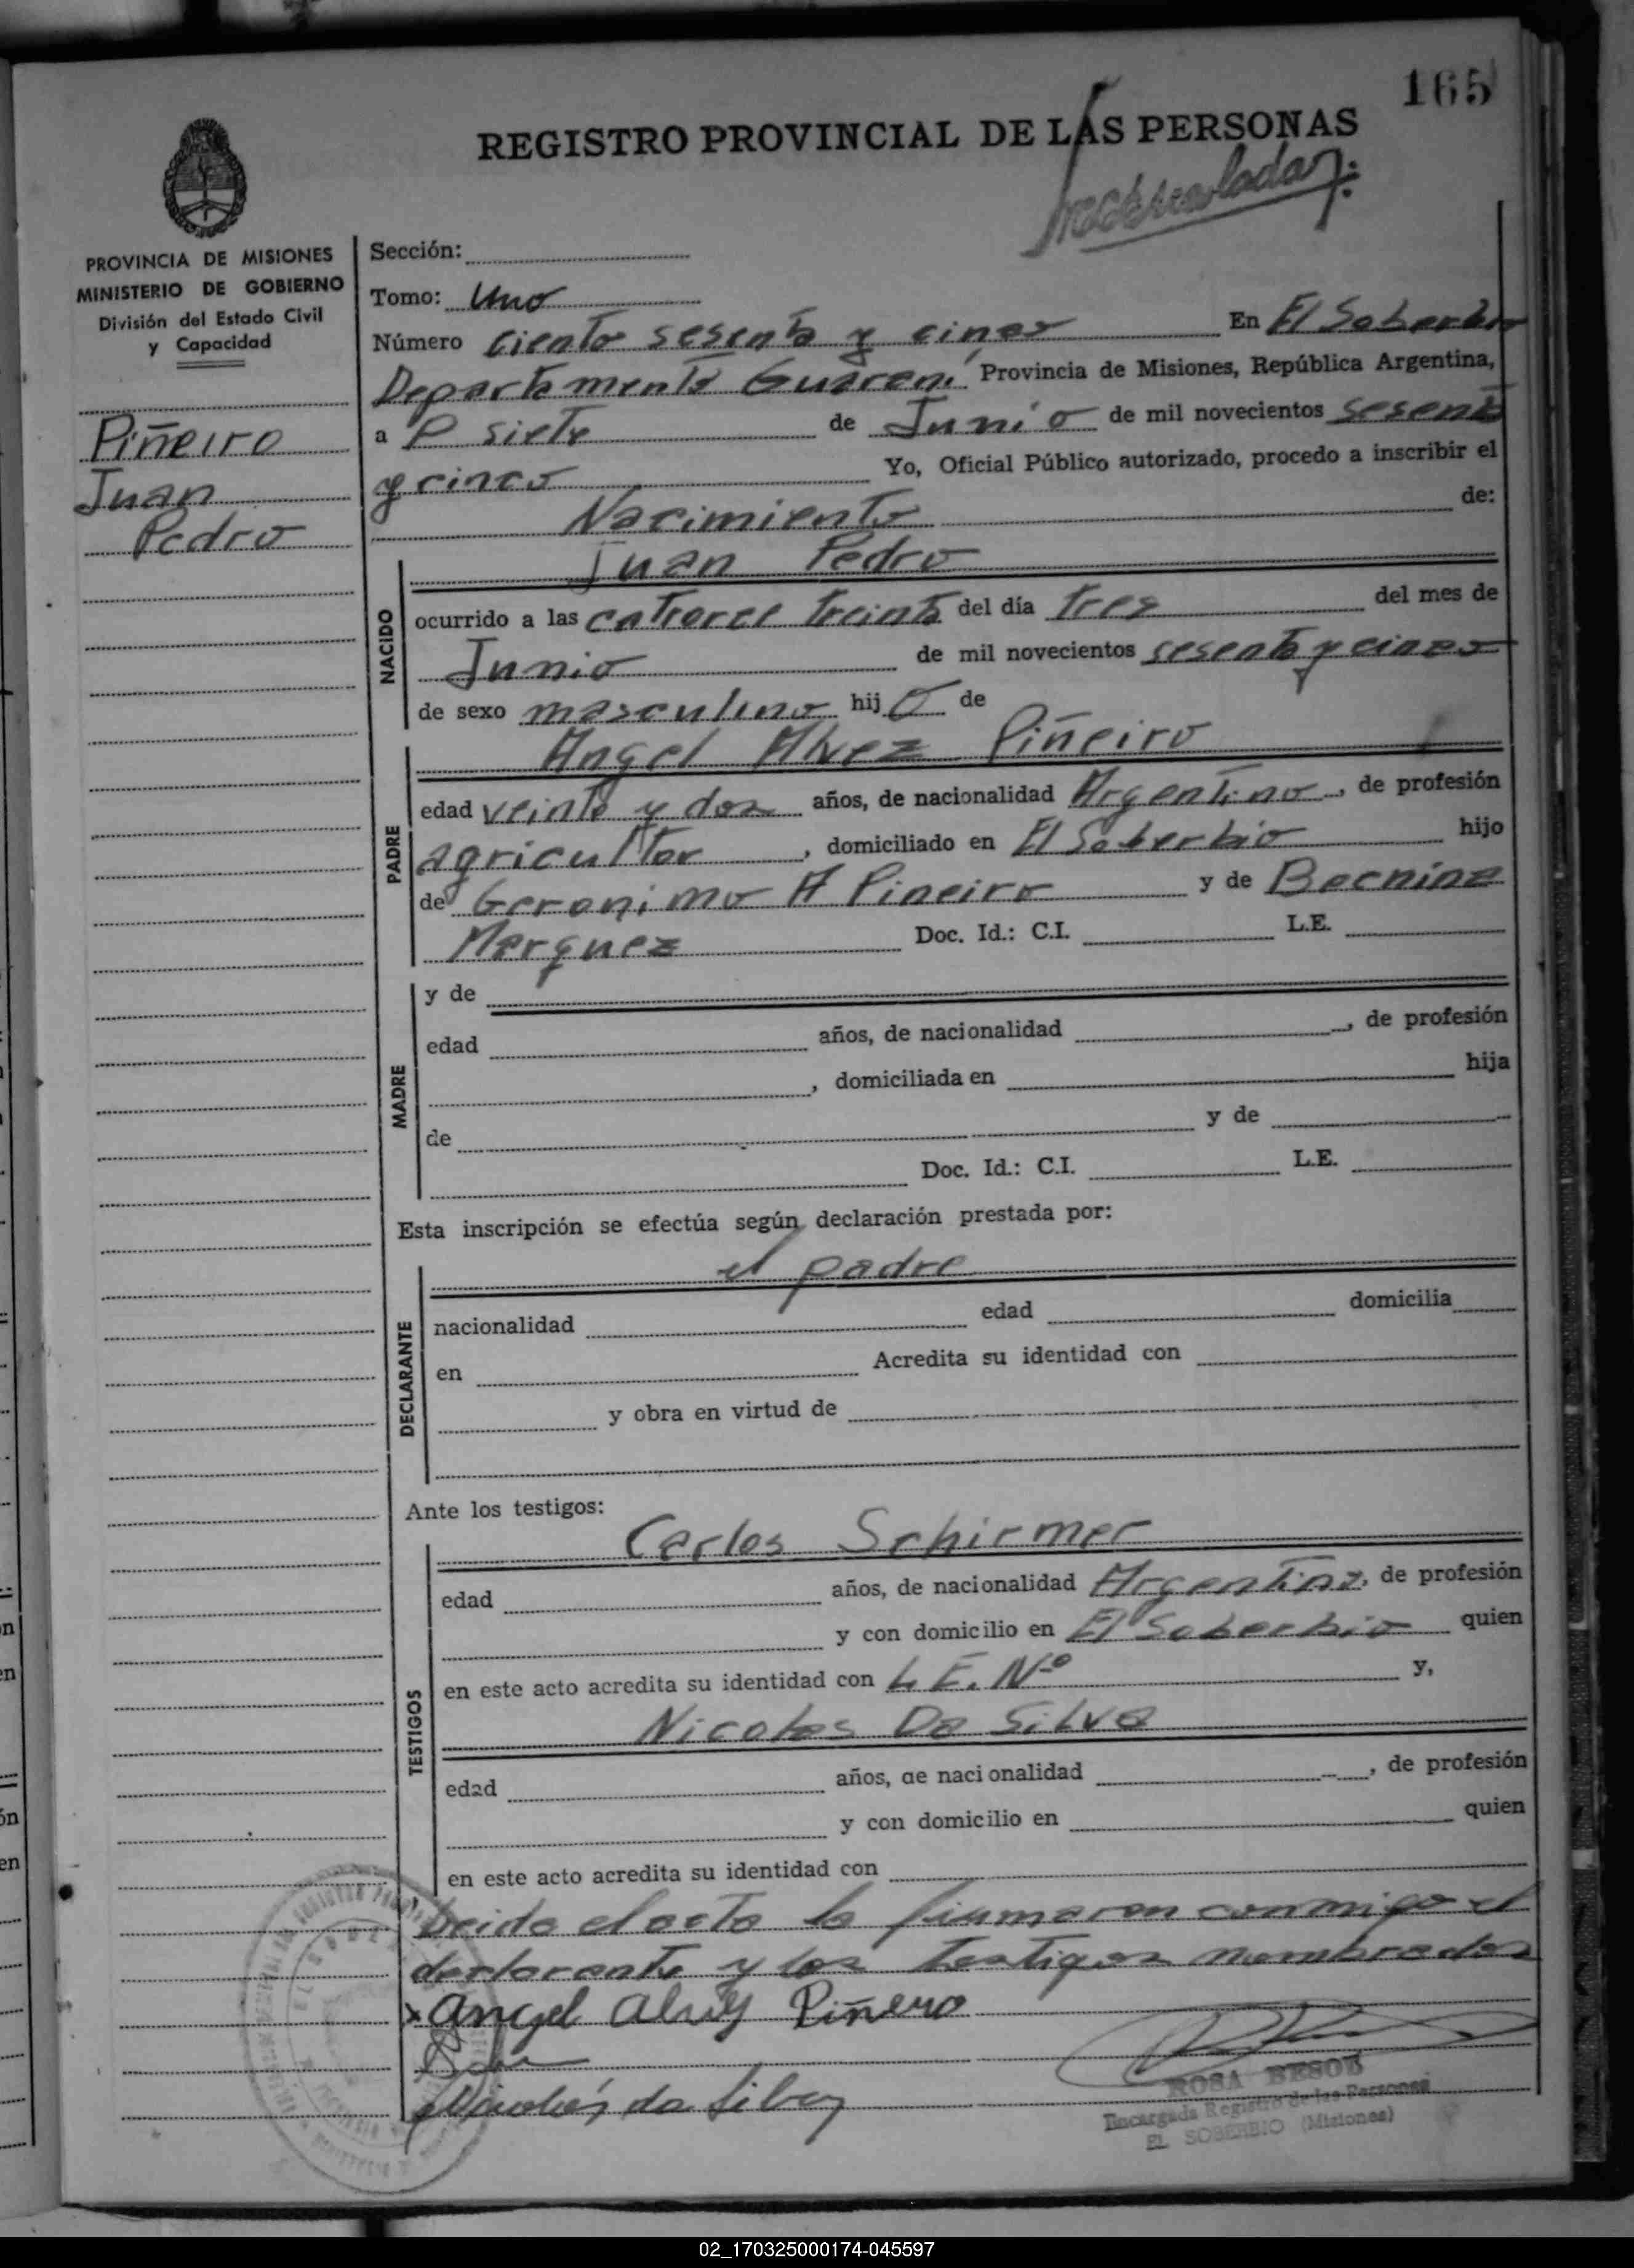 165
REGISTRO PROVINCIAL DE LAS PERSONAS
PROVINCIA DE MISIONES
MINISTERIO DE GOBIERNO
División del Estado Civil
y Capacidad
Piñeiro
Juan
Pedro
Sección:
Tomo: Uno
Número ciento sesenta y cinco En El Soberbio
Departamento Guarani Provincia de Misiones, República Argentina,
a siete de Junio de mil novecientos sesenta
y cinco Yo, Oficial Público autorizado, procedo a inscribir el
Nacimiento de:
NACIDO
Juan Pedro
ocurrido a las catrorce treinta del día tres del mes de
Junio de mil novecientos sesenta y cinco
de sexo masculino hijo de
PADRE
Angel Alvez Piñeiro
edad veinte y dos años, de nacionalidad Argentino, de profesión
agricultor, domiciliado en El Soberbio hijo
de Geronimo A Pineiro y de Becnina
Marquez Doc. Id.: C.I. L.E.
MADRE
y de
edad años, de nacionalidad , de profesión
, domiciliada en hija
de y de
Doc. Id.: C.I. L.E.
Esta inscripción se efectúa según declaración prestada por:
DECLARANTE
el padre
nacionalidad edad domicilia
en Acredita su identidad con
y obra en virtud de
Ante los testigos:
TESTIGOS
Carlos Schirmer
edad años, de nacionalidad Argentina, de profesión
y con domicilio en El Soberbio quien
en este acto acredita su identidad con L.E. Nº y,
Nicolas Da Silva
edad años, de nacionalidad , de profesión
y con domicilio en quien
en este acto acredita su identidad con
Leida el acta la firmaron conmigo el
declarante y los testigos nombrados
x Angel Alvez Piñero
Nicolás da Silva
ROSA BESOE
Encargada Registro de las Personas
EL SOBERBIO (Misiones)
02_170325000174-045597